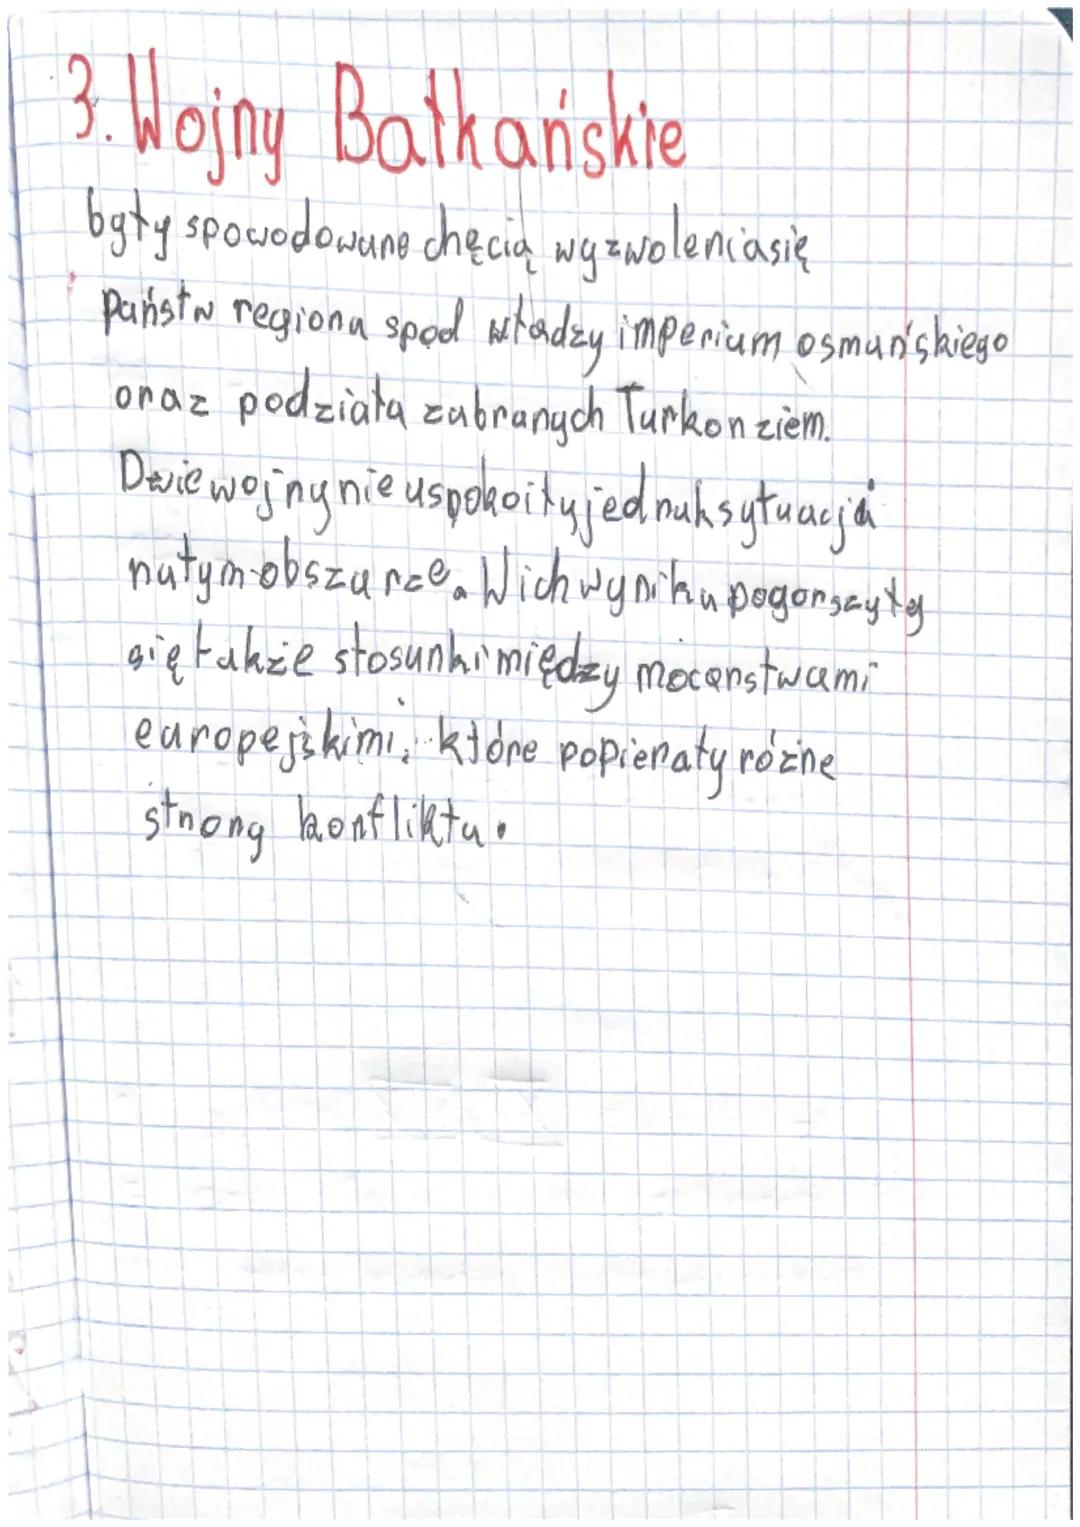 3. Wojny Bałkańskie
były spowodowane chęcią wyzwolenia się
państw regionu spod władzy imperium osmańskiego
oraz podziału zabranych Turkon ziem.
Dwie wojny nie uspokoiły jednak sytuacja
na tym obszarze. W ich wyniku pogorszyły
się także stosunki między mocarstwami
europejskimi, które popierały różne
strony konfliktu.